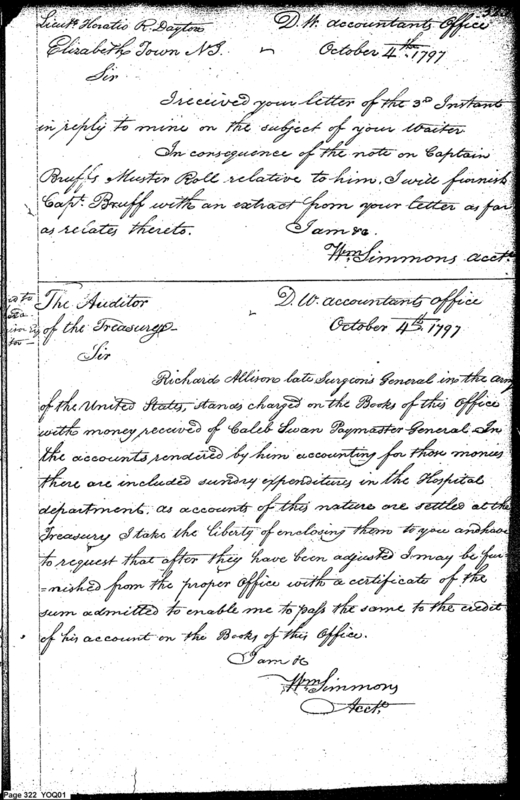 Lieut. Horatio R. Dayton
D. W. accountants Office
Elizabeth Town NJ.
October 4th. 1797
Sir
I received your letter of the 3d Instant
in reply to mine on the subject of your Waiter
In consequence of the note on Captain
Bruff's Muster Roll relative to him, I will furnish
Capt. Bruff with an extract from your letter as far
as relates thereto. I am &c.
Wm Simmons acct.
The Auditor
D. W. accountants office
of the Treasury
October 4th. 1797
Sir
Richard Allison late Surgeon General in the army
of the United States, stands charged on the Books of this Office
with money received of Caleb Swan Paymaster General. In
the accounts rendered by him accounting for those monies
there are included sundry expenditures in the Hospital
department. as accounts of this nature are settled at the
Treasury I take the liberty of enclosing them to you and have
to request that after they have been adjusted I may be fur
=nished from the proper Office with a certificate of the
sum admitted to enable me to pass the same to the credit
of his account on the Books of this Office.
I am &c
Wm Simmons
Acct.
Page 322 YOQ01